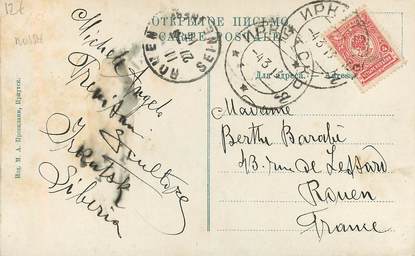 12€
ОТКРЫТОЕ ПИСЬМО.
CARTE POSTALE
ROUEN
SEINE
ИРКУТСКЪ
4 3
Для адреса. - Adresse.
Michele Angelo
Scultore
Irkutsk
Siberia
Madame
Berthe Barabé
43 rue de Lessard
Rouen
France
Изд. М. А. Иркутск.